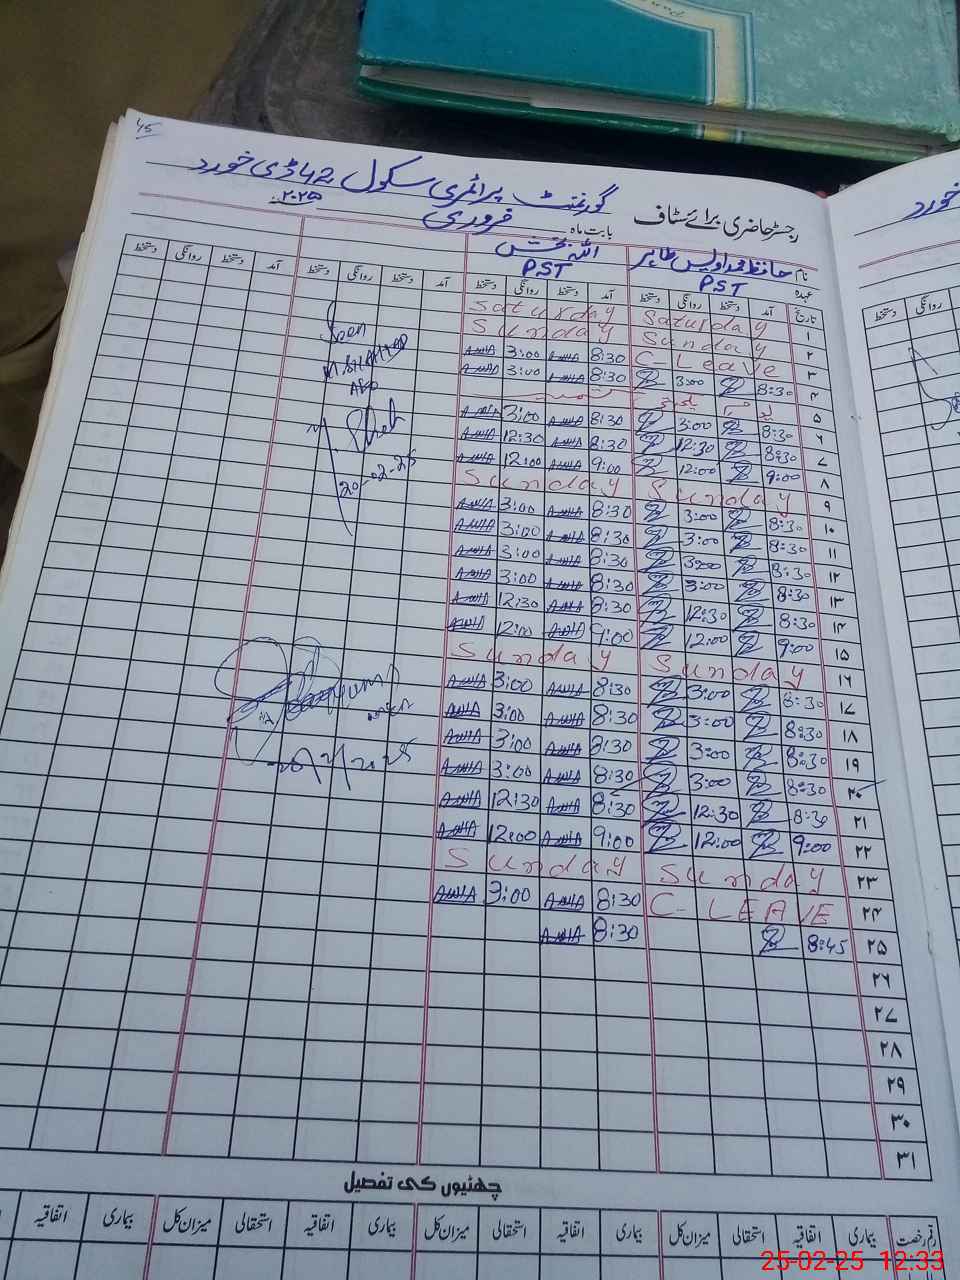 45
گورنمنٹ پرائمری سکول 42 ڈی خورد
رجسٹر حاضری برائے سٹاف
بابت ماہ فروری ۲۰۲۵
نام حافظ محمد اویس طاہر اللہ بخش
عہدہ PST PST
تاریخ آمد دستخط روانگی دستخط آمد دستخط روانگی دستخط آمد دستخط روانگی دستخط آمد دستخط روانگی دستخط
۱ Saturday Saturday
۲ Sunday Sunday
۳ C-Leave 8:30 3:00
۴ 8:30 3:00 8:30 3:00
۵ یوم یکجہتی کشمیر
۶ 8:30 3:00 8:30 3:00
۷ 8:30 12:30 8:30 12:30
۸ 9:00 12:00 9:00 12:00
۹ Sunday Sunday
۱۰ 8:30 3:00 8:30 3:00
۱۱ 8:30 3:00 8:30 3:00
۱۲ 8:30 3:00 8:30 3:00
۱۳ 8:30 3:00 8:30 3:00
۱۴ 8:30 12:30 8:30 12:30
۱۵ 9:00 12:00 9:00 12:00
۱۶ Sunday Sunday
۱۷ 8:30 3:00 8:30 3:00
۱۸ 8:30 3:00 8:30 3:00
۱۹ 8:30 3:00 8:30 3:00
۲۰ 8:30 3:00 8:30 3:00
۲۱ 8:30 12:30 8:30 12:30
۲۲ 9:00 12:00 9:00 12:00
۲۳ Sunday Sunday
۲۴ C-LEAVE 8:30 3:00
۲۵ 8:45 8:30
۲۶
۲۷
۲۸
۲۹
۳۰
۳۱
Seen
20-02-25
چھٹیوں کی تفصیل
رقم رخصت بیماری اتفاقیہ استحقاقی میزان کل بیماری اتفاقیہ استحقاقی میزان کل بیماری اتفاقیہ استحقاقی میزان کل بیماری اتفاقیہ
خورد
روانگی دستخط
25-02-25 12:33